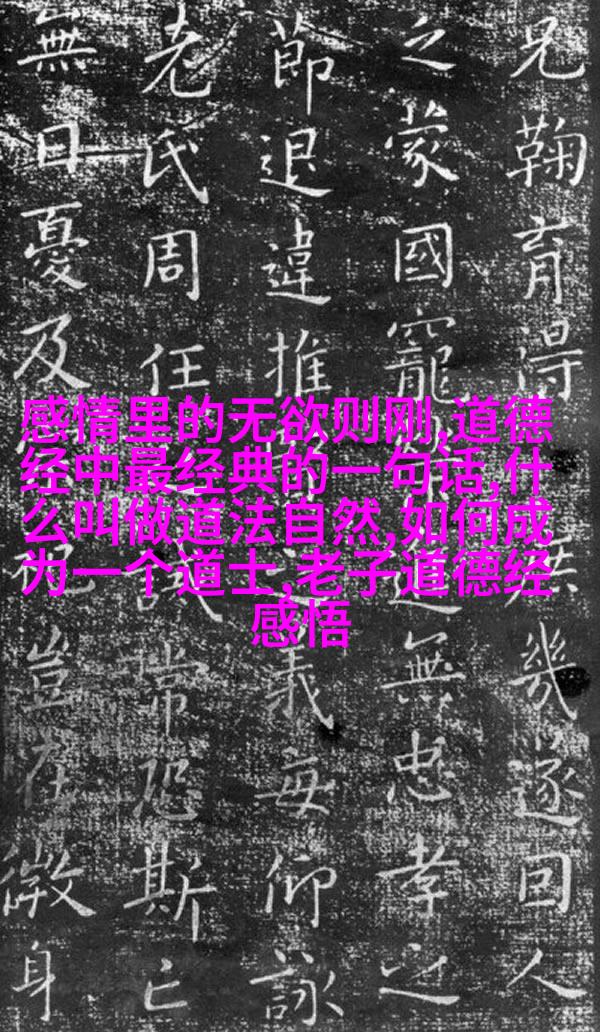 兄鞠育得 族幾遂回人
之蒙國寵 無忠孝之
節退違推 義每仰詠
老氏周任 誡常恐斯亡
無日憂及 豈在微身
感情里的无欲则刚,道德
经中最经典的一句话,什
么叫做道法自然,如何成
为一个道士,老子道德经
感悟